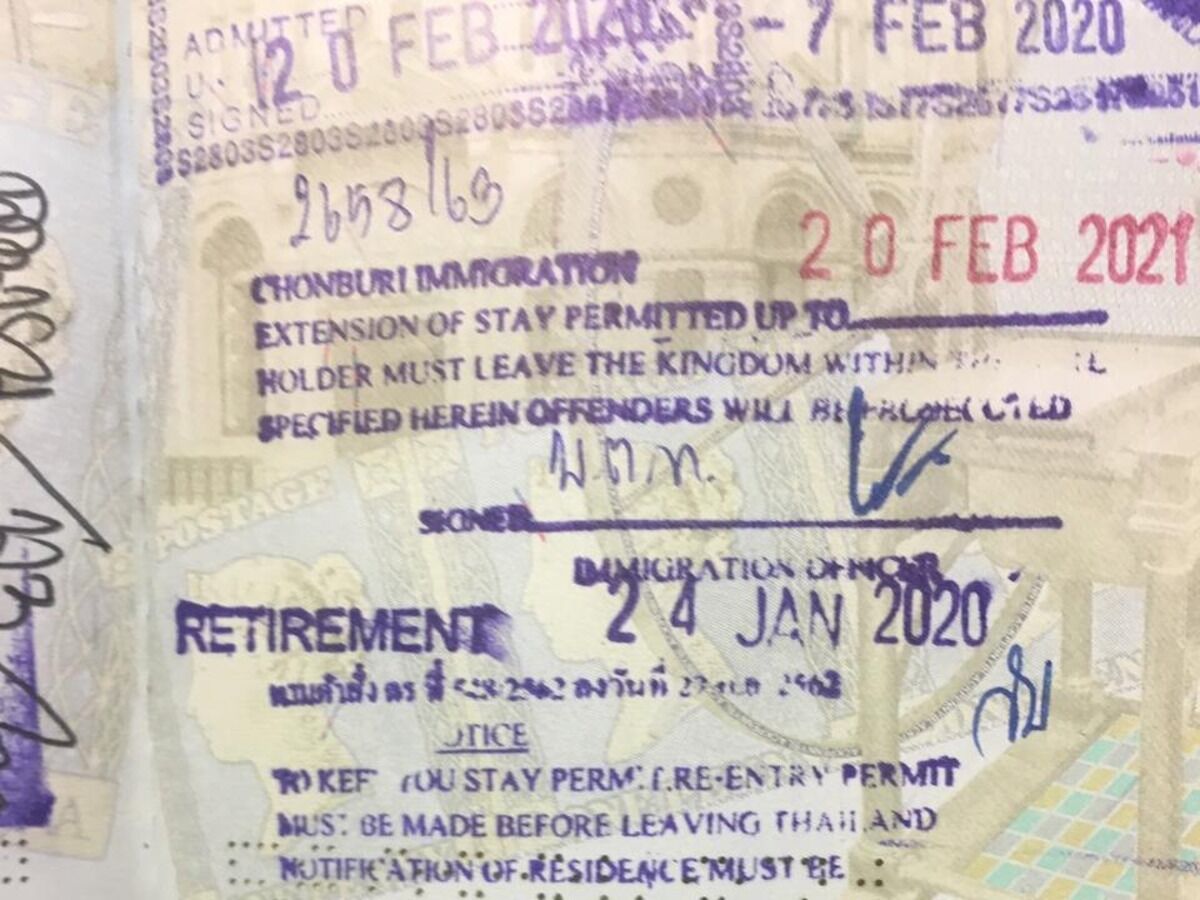 ADMITTED
20 FEB 2020 - 7 FEB 2020
SIGNED
S2803S2803S2803S2803S2803
2658/63
20 FEB 2021
CHONBURI IMMIGRATION
EXTENSION OF STAY PERMITTED UP TO
HOLDER MUST LEAVE THE KINGDOM WITHIN
SPECIFIED HEREIN OFFENDERS WILL BE
พ.ต.ท.
SIGNED
IMMIGRATION OFFICER
RETIREMENT 24 JAN 2020
ตามคำสั่ง ตร ที่ 528/2562 ลงวันที่ 2562
POSTAGE
TO KEEP YOU STAY PERMIT.RE-ENTRY PERMIT
MUST BE MADE BEFORE LEAVING THAILAND
NOTIFICATION OF RESIDENCE MUST BE